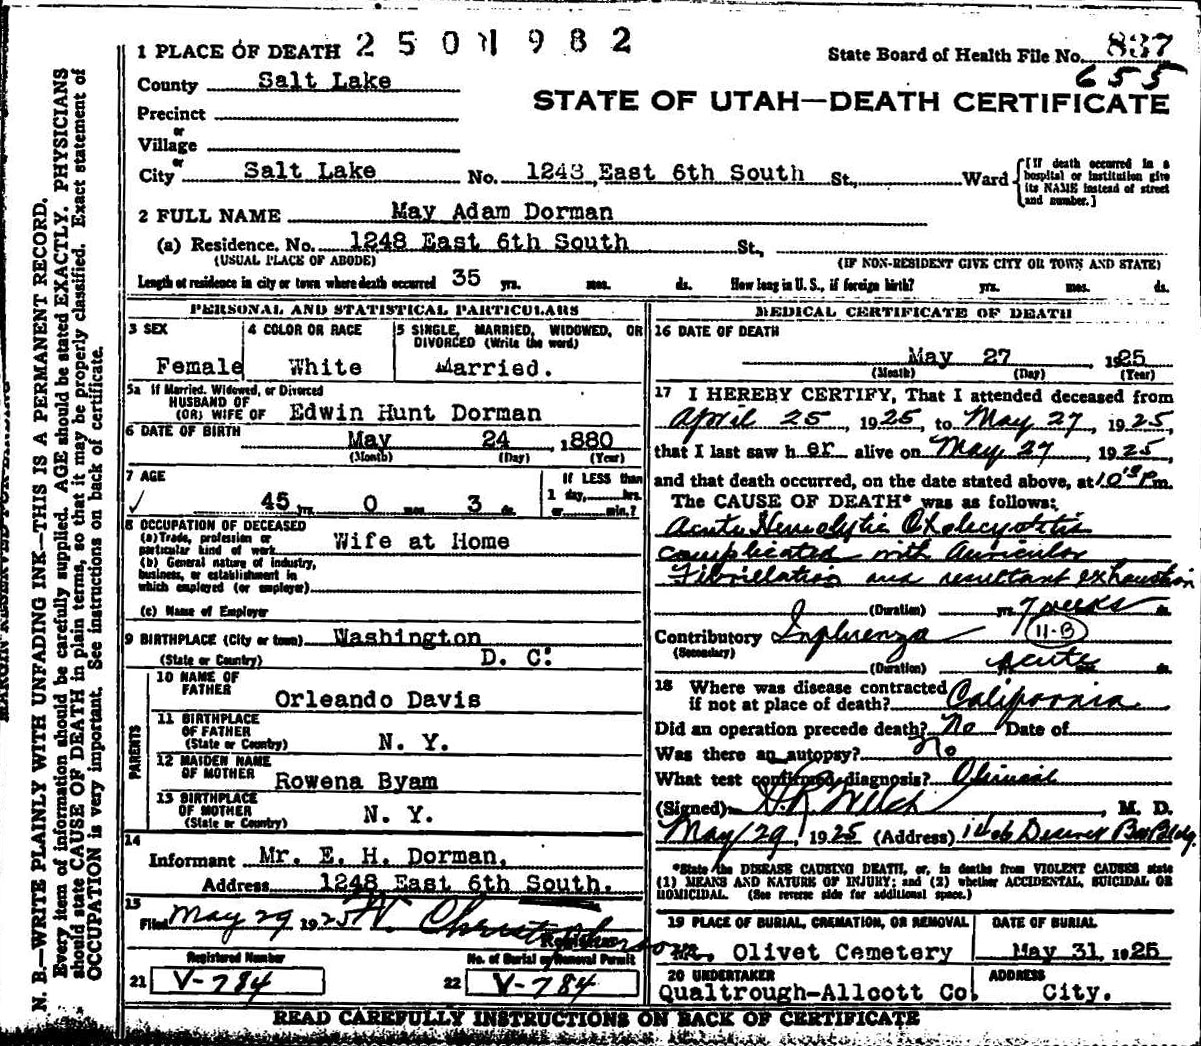 1 PLACE OF DEATH 2501982
State Board of Health File No. 837
655
County Salt Lake
STATE OF UTAH—DEATH CERTIFICATE
Precinct
or
Village
or
City Salt Lake No. 1248 East 6th South St., Ward
[If death occurred in a hospital or institution give its NAME instead of street and number.]
2 FULL NAME May Adam Dorman
(a) Residence. No. 1248 East 6th South St,
(USUAL PLACE OF ABODE) (IF NON-RESIDENT GIVE CITY OR TOWN AND STATE)
Length of residence in city or town where death occurred 35 yrs. mos. ds. How long in U. S., if foreign birth? yrs. mos. ds.
PERSONAL AND STATISTICAL PARTICULARS
3 SEX 4 COLOR OR RACE 5 SINGLE, MARRIED, WIDOWED, OR
DIVORCED (Write the word)
Female White Married.
5a If Married, Widowed, or Divorced
HUSBAND OF
(OR) WIFE OF Edwin Hunt Dorman
6 DATE OF BIRTH May 24 1880
(Month) (Day) (Year)
7 AGE If LESS than
1 day, hrs.
45 yrs. 0 mos. 3 ds. or min.?
8 OCCUPATION OF DECEASED
(a) Trade, profession or
particular kind of work Wife at Home
(b) General nature of industry,
business, or establishment in
which employed (or employer)
(c) Name of Employer
9 BIRTHPLACE (City or town) Washington
(State or Country) D. C.
PARENTS
10 NAME OF
FATHER Orleando Davis
11 BIRTHPLACE
OF FATHER
(State or Country) N. Y.
12 MAIDEN NAME
OF MOTHER Rowena Byam
13 BIRTHPLACE
OF MOTHER
(State or Country) N. Y.
14
Informant Mr. E. H. Dorman,
Address 1248 East 6th South.
15
Filed May 29 1925 W. Christopherson
Registrar
Registered Number No. of Burial or Removal Permit
21 V-784 22 V-784
MEDICAL CERTIFICATE OF DEATH
16 DATE OF DEATH
May 27 1925
(Month) (Day) (Year)
17 I HEREBY CERTIFY, That I attended deceased from
April 25, 1925, to May 27, 1925,
that I last saw h er alive on May 27, 1925,
and that death occurred, on the date stated above, at 10 Pm.
The CAUSE OF DEATH* was as follows:
Acute Hemolytic Cholecystitis
complicated with auricular
Fibrillation and resultant exhaustion
(Duration) yrs. 7 weeks ds.
Contributory Influenza 11-B
(Secondary)
(Duration) acute ds.
18 Where was disease contracted
if not at place of death? California
Did an operation precede death? No Date of
Was there an autopsy? No
What test confirmed diagnosis? Clinical
(Signed) Welch, M. D.
May 29, 1925 (Address) Deseret Bk Bldg.
*State the DISEASE CAUSING DEATH, or, in deaths from VIOLENT CAUSES state
(1) MEANS AND NATURE OF INJURY; and (2) whether ACCIDENTAL, SUICIDAL OR
HOMICIDAL. (See reverse side for additional space.)
19 PLACE OF BURIAL, CREMATION, OR REMOVAL DATE OF BURIAL
Mt. Olivet Cemetery May 31, 1925
20 UNDERTAKER ADDRESS
Qualtrough-Allcott Co. City.
READ CAREFULLY INSTRUCTIONS ON BACK OF CERTIFICATE
MARGIN RESERVED FOR BINDING
N. B.—WRITE PLAINLY WITH UNFADING INK—THIS IS A PERMANENT RECORD.
Every item of information should be carefully supplied. AGE should be stated EXACTLY. PHYSICIANS
should state CAUSE OF DEATH in plain terms, so that it may be properly classified. Exact statement of
OCCUPATION is very important. See instructions on back of certificate.